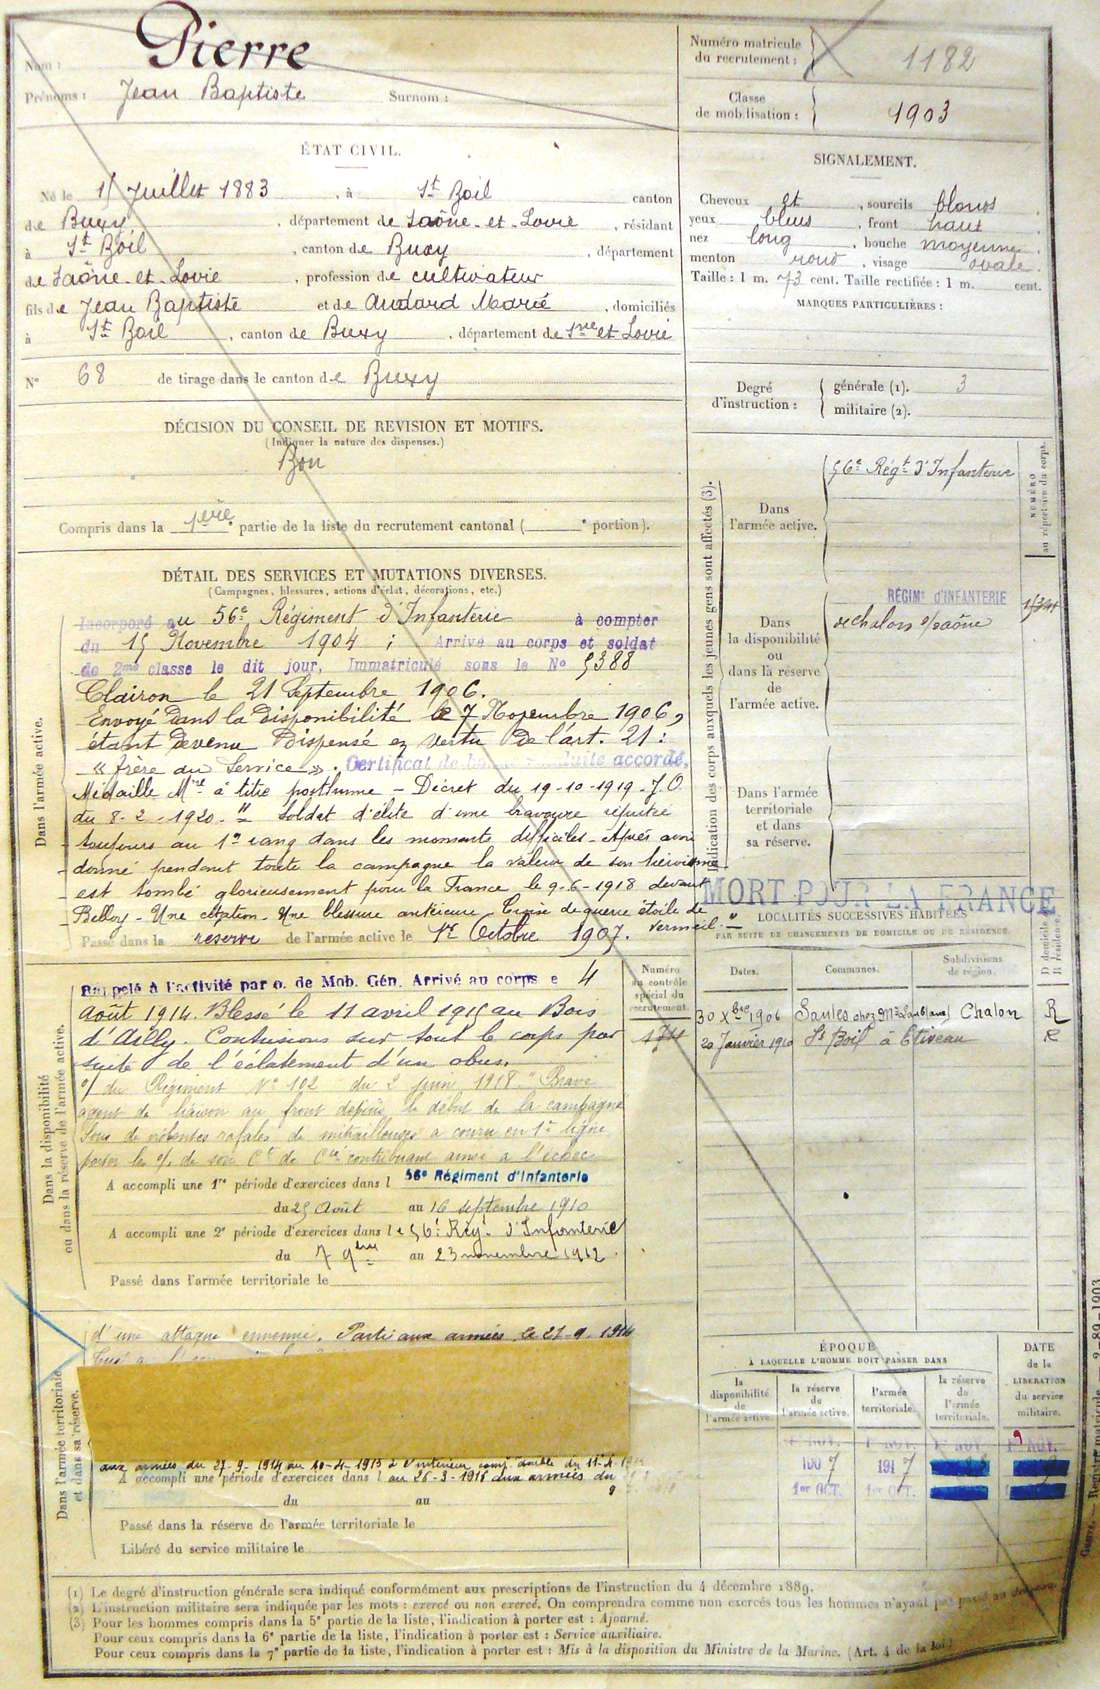 Nom : Pierre
Prénoms : Jean Baptiste Surnom :
Numéro matricule du recrutement : 1182
Classe de mobilisation : 1903
ÉTAT CIVIL.
Né le 15 Juillet 1883, à St Boil canton
de Buxy, département de Saône-et-Loire, résidant
à St Boil, canton de Buxy, département
de Saône-et-Loire, profession de cultivateur
fils de Jean Baptiste et de Audard Marie, domiciliés
à St Boil, canton de Buxy, département de Sne et Loire
N° 68 de tirage dans le canton de Buxy
SIGNALEMENT.
Cheveux et, sourcils blonds
yeux bleus, front haut
nez long, bouche moyenne
menton rond, visage ovale
Taille : 1 m. 73 cent. Taille rectifiée : 1 m. cent.
MARQUES PARTICULIÈRES :
Degré d'instruction : générale (1). 3
militaire (2).
DÉCISION DU CONSEIL DE REVISION ET MOTIFS.
(Indiquer la nature des dispenses.)
Bon
Compris dans la 1ère partie de la liste du recrutement cantonal ( e portion).
DÉTAIL DES SERVICES ET MUTATIONS DIVERSES.
(Campagnes, blessures, actions d'éclat, décorations, etc.)
Dans l'armée active.
Incorporé au 56e Régiment d'Infanterie à compter
du 15 Novembre 1904 ; Arrivé au corps et soldat
de 2me classe le dit jour, Immatriculé sous le N° 5388
Clairon le 21 Septembre 1906.
Envoyé dans la disponibilité le 7 Novembre 1906,
étant devenu Dispensé en vertu de l'art. 21 :
« frère au Service ». Certificat de bonne conduite accordé,
Médaille Mre à titre posthume - Décret du 19-10-1919 - J.O
du 8-2-1920 - " Soldat d'élite d'une bravoure réputée
toujours au 1er rang dans les moments difficiles - Après avoir
donné pendant toute la campagne la valeur de son héroïsme
est tombé glorieusement pour la France le 9-6-1918 devant
Belloy - Une citation - Une blessure antérieure Croix de guerre étoile de
vermeil - "
Passé dans la réserve de l'armée active le 1er Octobre 1907.
Indication des corps auxquels les jeunes gens sont affectés (3).
NUMÉRO au répertoire du corps.
Dans l'armée active.
56e Régt d'Infanterie
Dans la disponibilité ou dans la réserve de l'armée active.
RÉGIMt d'INFANTERIE
de Chalon s/Saône
Dans l'armée territoriale et dans sa réserve.
MORT POUR LA FRANCE
LOCALITÉS SUCCESSIVES HABITÉES
PAR SUITE DE CHANGEMENTS DE DOMICILE OU DE RÉSIDENCE.
Dates. Communes. Subdivisions de région. D domicile R résidence.
30 Xbre 1906 Saules chez Mr Chalon R
20 Janvier 1910 St Boil à Etiveau R
Dans la disponibilité ou dans la réserve de l'armée active.
Numéro au contrôle spécial du recrutement.
Rappelé à l'activité par o. de Mob. Gén. Arrivé au corps le 4
Août 1914. Blessé le 11 avril 1915 au Bois
d'Ailly. Contusions sur tout le corps par
suite de l'éclatement d'un obus.
o/ du Régiment N° 102 du 2 juin 1918. " Brave
agent de liaison au front depuis le début de la campagne
Sous de violentes rafales de mitrailleuses a couru en 1e ligne
porter les o/ de son Ct de Cie contribuant ainsi à l'échec
A accompli une 1re période d'exercices dans l 56e Régiment d'Infanterie
du 25 Août au 16 septembre 1910
A accompli une 2e période d'exercices dans le 56e Régt d'Infanterie
du 7 9bre au 23 novembre 1912.
Passé dans l'armée territoriale le
Dans l'armée territoriale et dans sa réserve.
d'une attaque ennemie. Parti aux armées le 27-9-1914
aux armées du 27-9-1914 au 10-4-1915 à l'intérieur camp. double du 11-4-
A accompli une période d'exercices dans l au 26-3-1916 aux armées du
du au
Passé dans la réserve de l'armée territoriale le
Libéré du service militaire le
ÉPOQUE
À LAQUELLE L'HOMME DOIT PASSER DANS
la disponibilité de l'armée active. la réserve de l'armée active. l'armée territoriale. la réserve de l'armée territoriale.
DATE de la LIBÉRATION du service militaire.
1907 1917
1er OCT. 1er OCT.
(1) Le degré d'instruction générale sera indiqué conformément aux prescriptions de l'instruction du 4 décembre 1889.
(2) L'instruction militaire sera indiquée par les mots : exercé ou non exercé. On comprendra comme non exercés tous les hommes n'ayant pas passé au
(3) Pour les hommes compris dans la 5e partie de la liste, l'indication à porter est : Ajourné.
Pour ceux compris dans la 6e partie de la liste, l'indication à porter est : Service auxiliaire.
Pour ceux compris dans la 7e partie de la liste, l'indication à porter est : Mis à la disposition du Ministre de la Marine. (Art. 4 de la loi.)